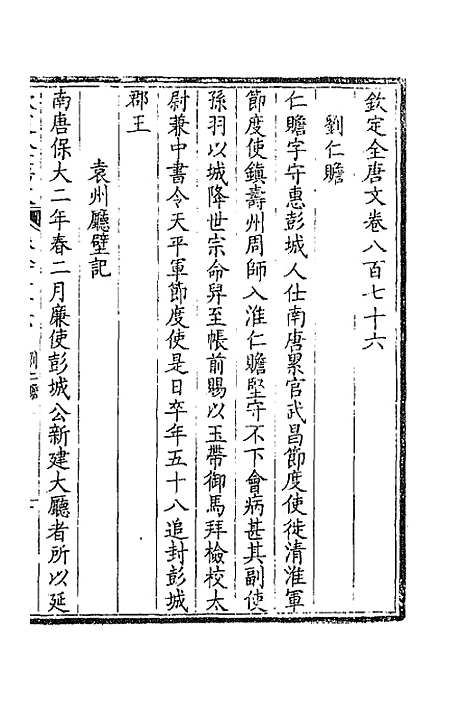 欽定全唐文卷八百七十六
劉仁贍
仁贍字守惠彭城人仕南唐累官武昌節度使徙清淮軍
節度使鎮壽州周師入淮仁贍堅守不下會病甚其副使
孫羽以城降世宗命舁至帳前賜以玉帶御馬拜檢校太
尉兼中書令天平軍節度使是日卒年五十八追封彭城
郡王
袁州廳壁記
南唐保大二年春二月廉使彭城公新建大廳者所以延